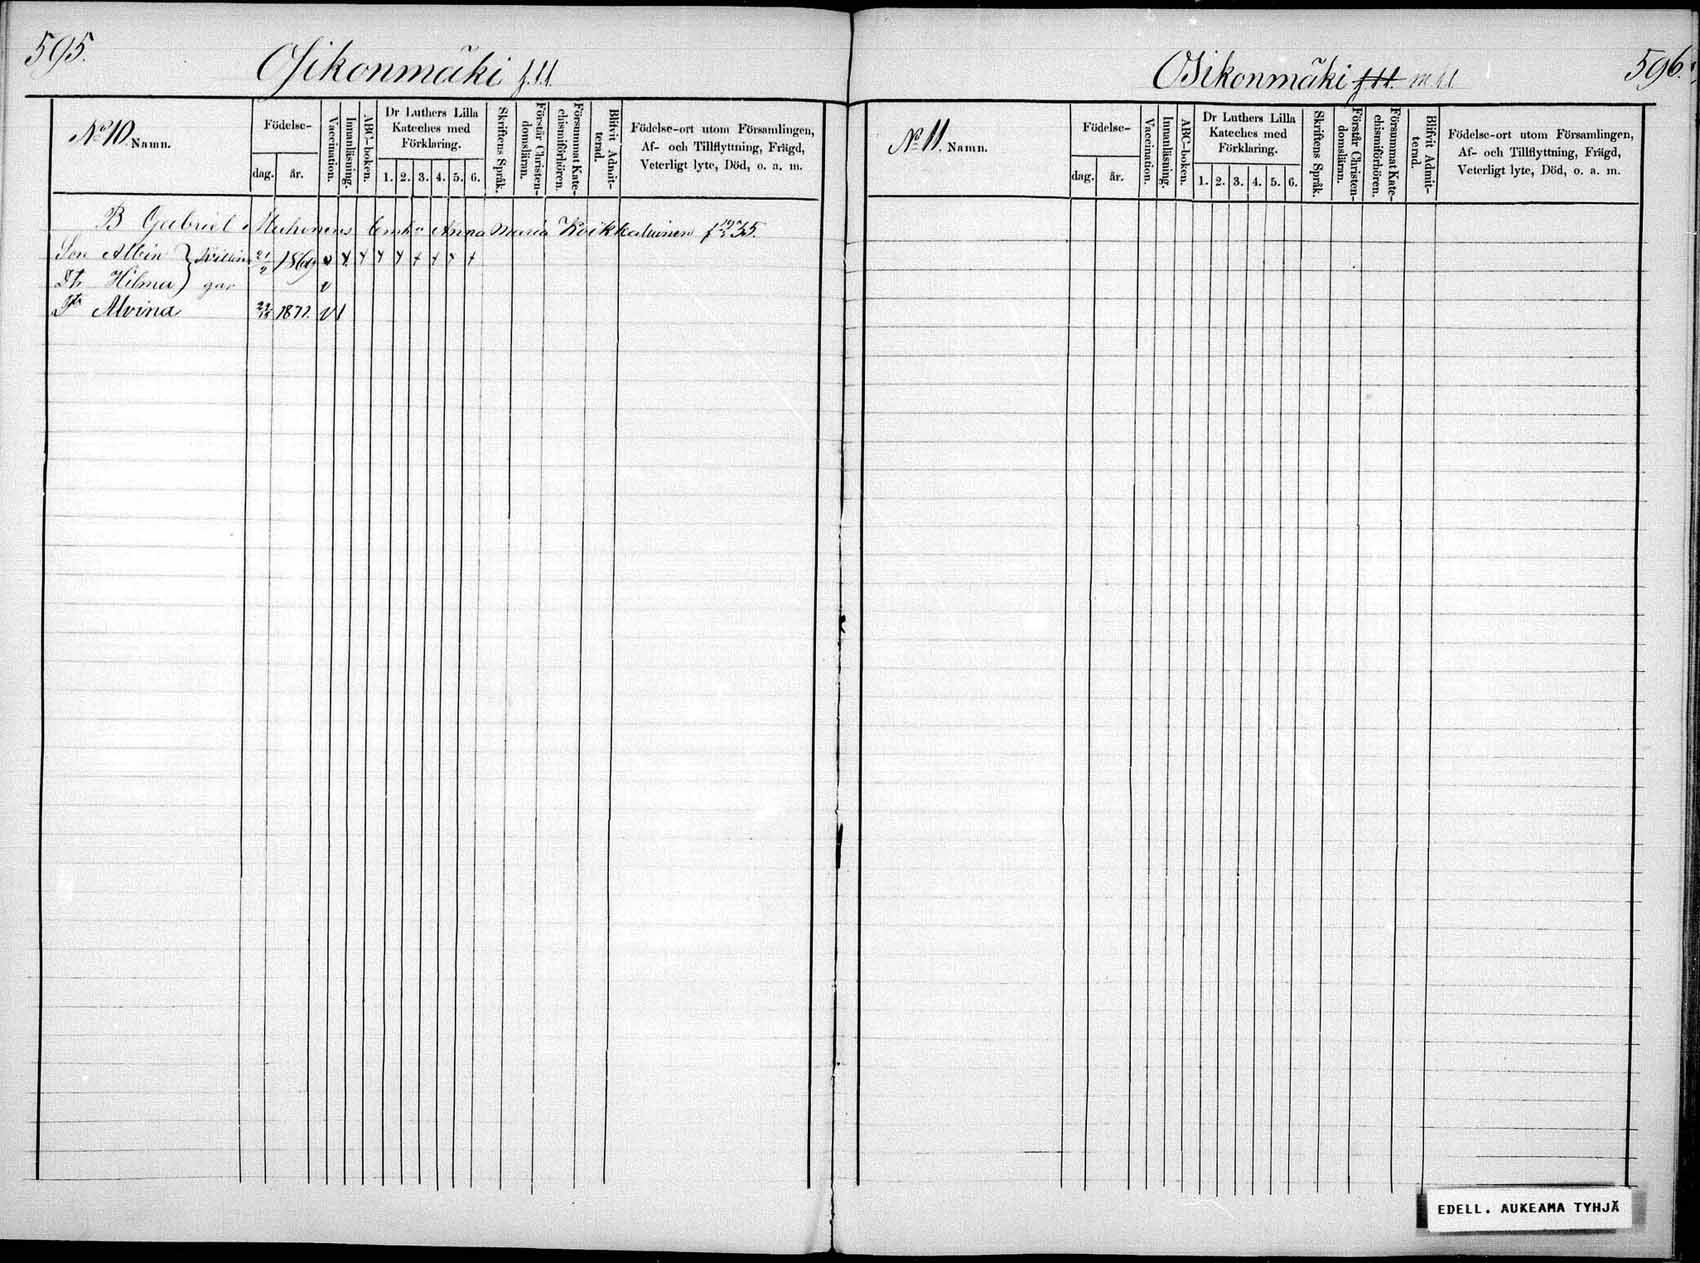 595.
Osikonmäki
No 10. Namn.
Födelse-
dag. år.
Vaccination.
Innanläsning.
ABC-boken.
Dr Luthers Lilla
Kateches med
Förklaring.
1. 2. 3. 4. 5. 6.
Skriftens Språk.
Förstår Christen-
domsläran.
Försummat Kate-
chismiförhören.
Blifvit Admit-
terad.
Födelse-ort utom Församlingen,
Af- och Tillflyttning, Frägd,
Veterligt lyte, Död, o. a. m.
B Gabriel Muhonens Enka Anna Maria f 35.
Son Albin 21/2 1869
Dr Hilma
Dr Alvina 1877.
Osikonmäki
596.
No 11. Namn.
Födelse-
dag. år.
Vaccination.
Innanläsning.
ABC-boken.
Dr Luthers Lilla
Kateches med
Förklaring.
1. 2. 3. 4. 5. 6.
Skriftens Språk.
Förstår Christen-
domsläran.
Försummat Kate-
chismiförhören.
Blifvit Admit-
terad.
Födelse-ort utom Församlingen,
Af- och Tillflyttning, Frägd,
Veterligt lyte, Död, o. a. m.
EDELL. AUKEAMA TYHJÄ